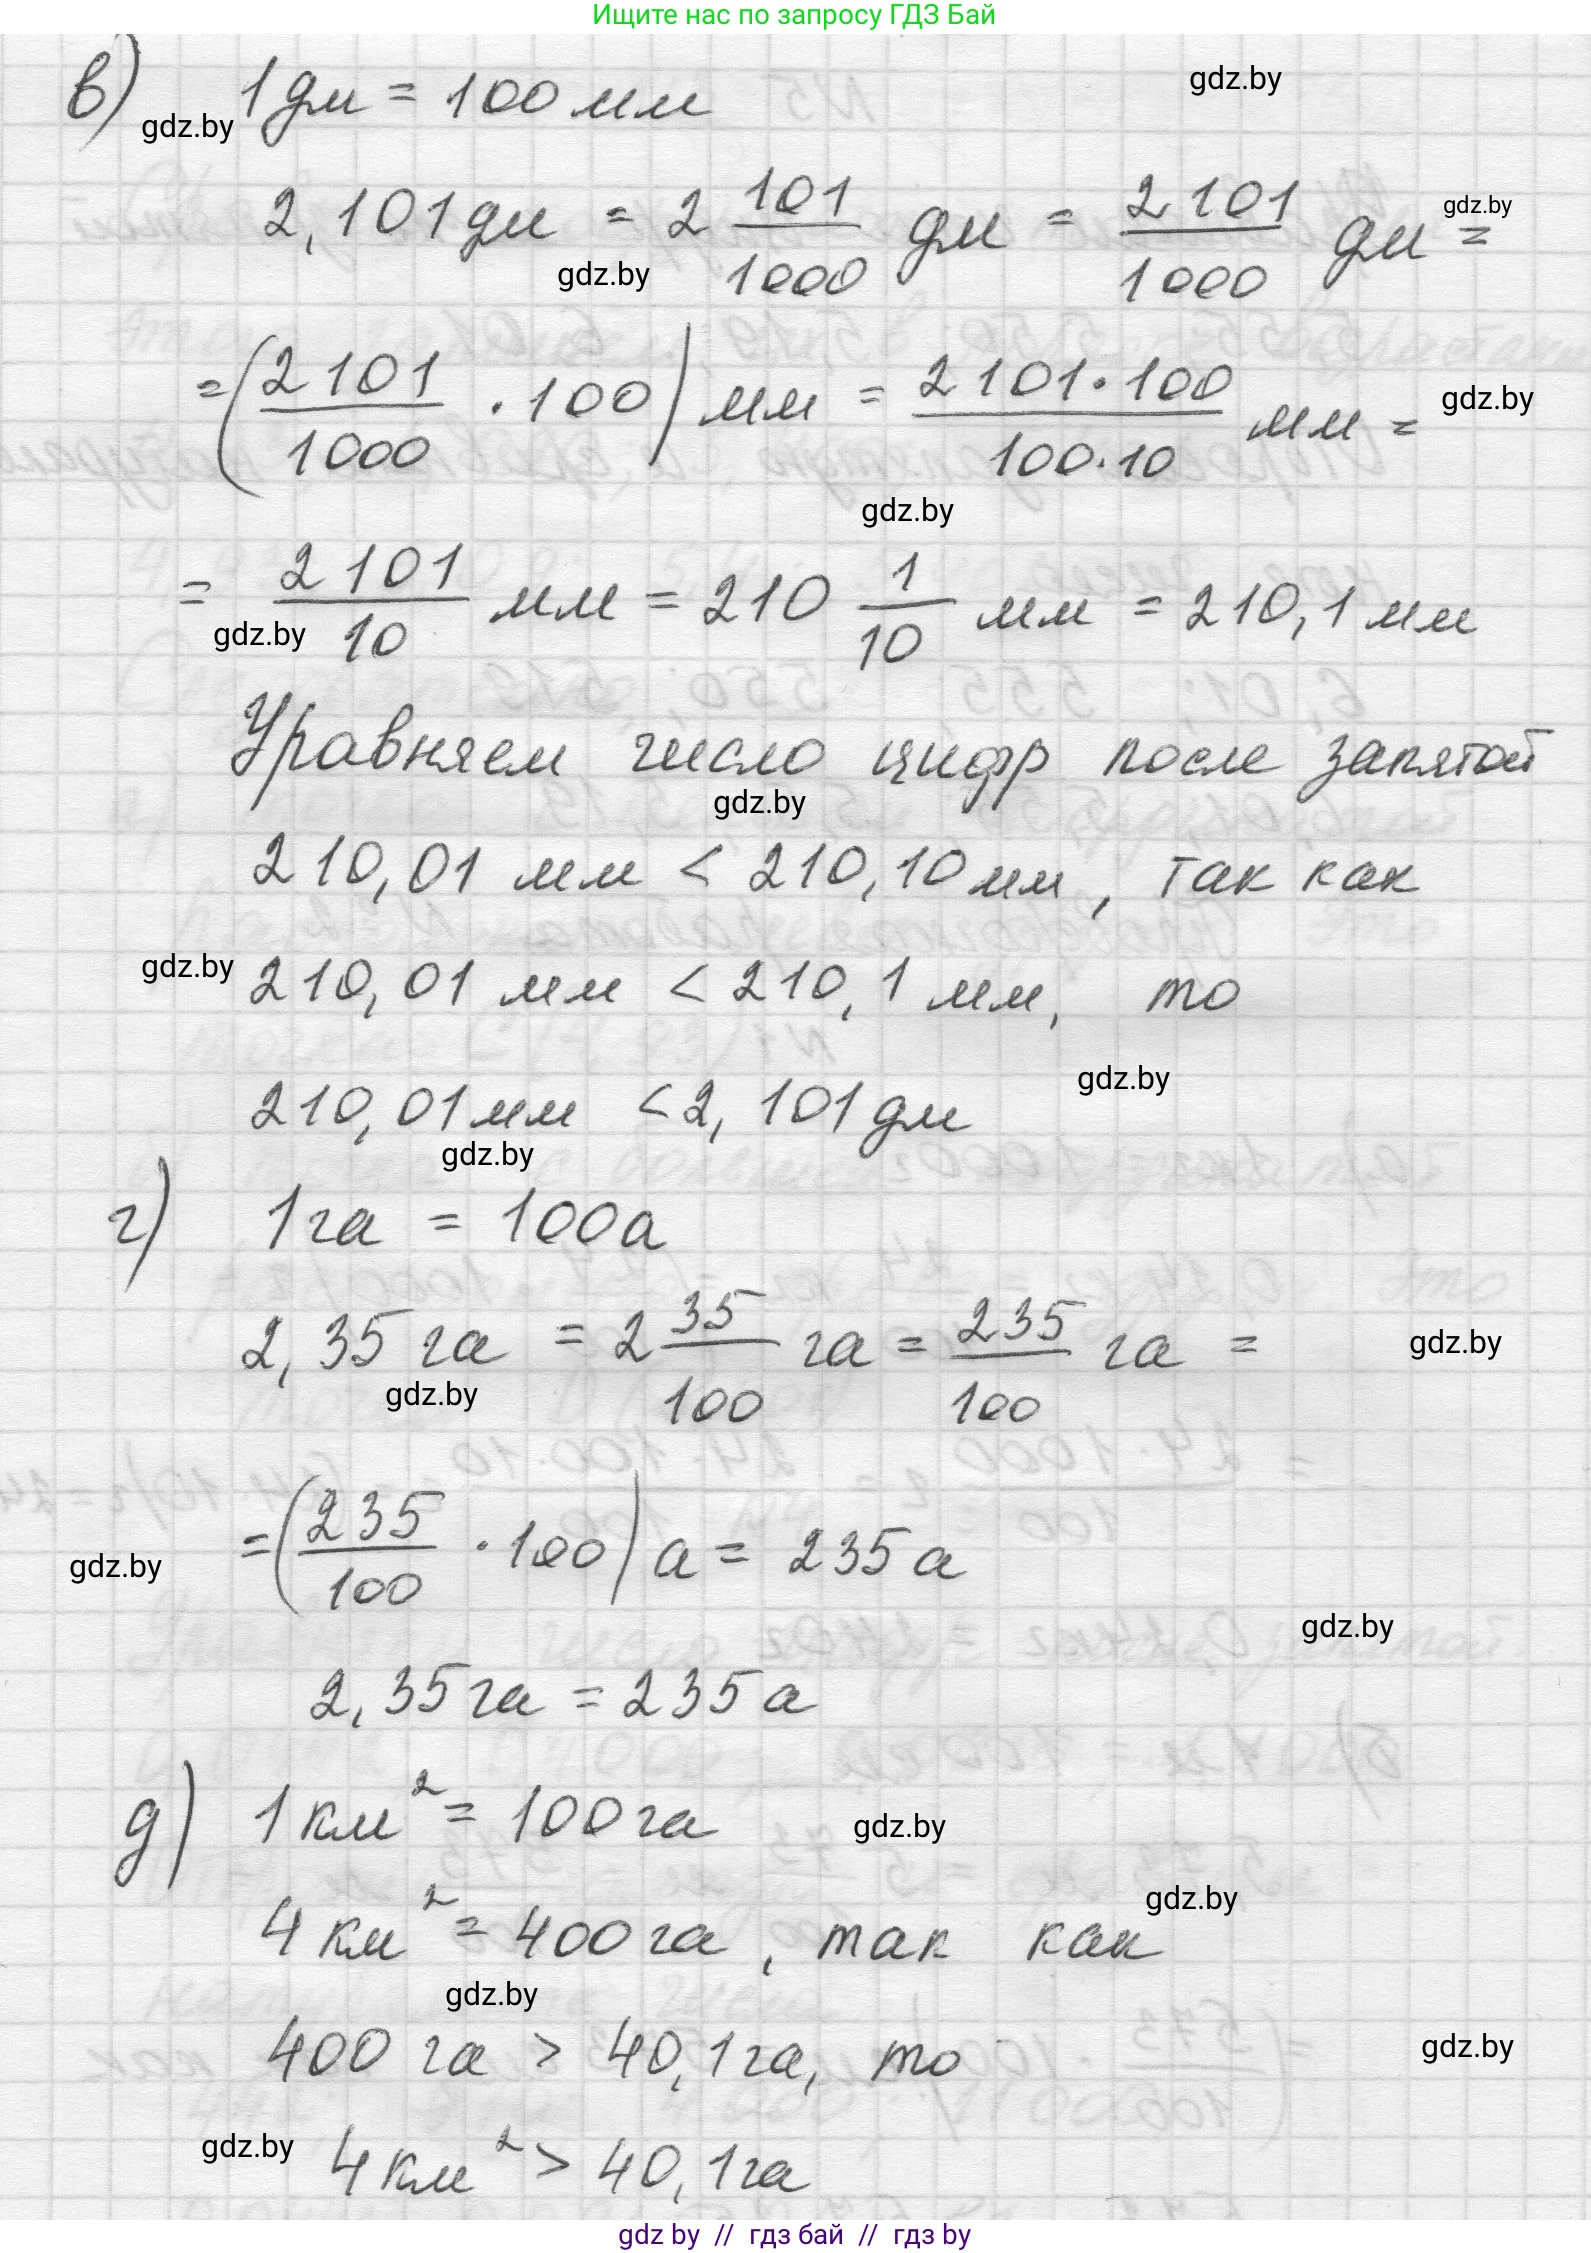 Ищите нас по запросу ГДЗ Бай
в) 1 дм = 100 мм
gdz.by
gdz.by
2,101 дм = 2 101/1000 дм = 2101/1000 дм =
gdz.by
gdz.by
= (2101/1000 · 100) мм = 2101·100/100·10 мм =
gdz.by
gdz.by
= 2101/10 мм = 210 1/10 мм = 210,1 мм
gdz.by
Уравняем число цифр после запятой
gdz.by
210,01 мм < 210,10 мм, так как
gdz.by
210,01 мм < 210,1 мм, то
gdz.by
210,01 мм < 2,101 дм
gdz.by
г) 1 га = 100 а
2,35 га = 2 35/100 га = 235/100 га =
gdz.by
gdz.by
= (235/100 · 100) а = 235 а
gdz.by
gdz.by
2,35 га = 235 а
д) 1 км² = 100 га
gdz.by
gdz.by
4 км² = 400 га, так как
gdz.by
400 га > 40,1 га, то
gdz.by
gdz.by
4 км² > 40,1 га
gdz by // гдз бай // гдз by